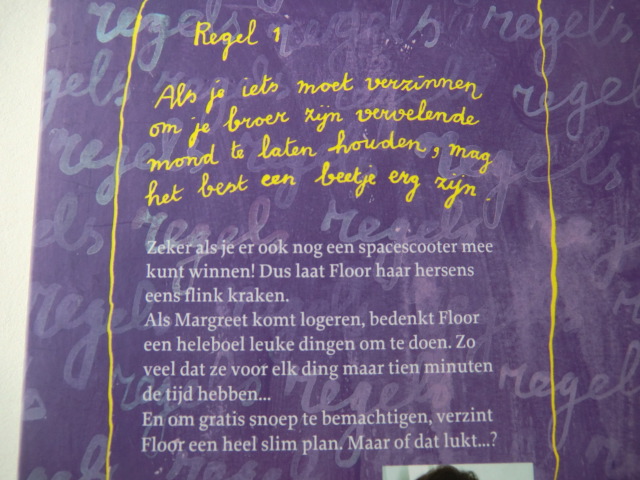 regels regels regels
Regel 1
Als je iets moet verzinnen
om je broer zijn vervelende
mond te laten houden, mag
het best een beetje erg zijn.
Zeker als je er ook nog een spacescooter mee
kunt winnen! Dus laat Floor haar hersens
eens flink kraken.
Als Margreet komt logeren, bedenkt Floor
een heleboel leuke dingen om te doen. Zo
veel dat ze voor elk ding maar tien minuten
de tijd hebben...
En om gratis snoep te bemachtigen, verzint
Floor een heel slim plan. Maar of dat lukt...?